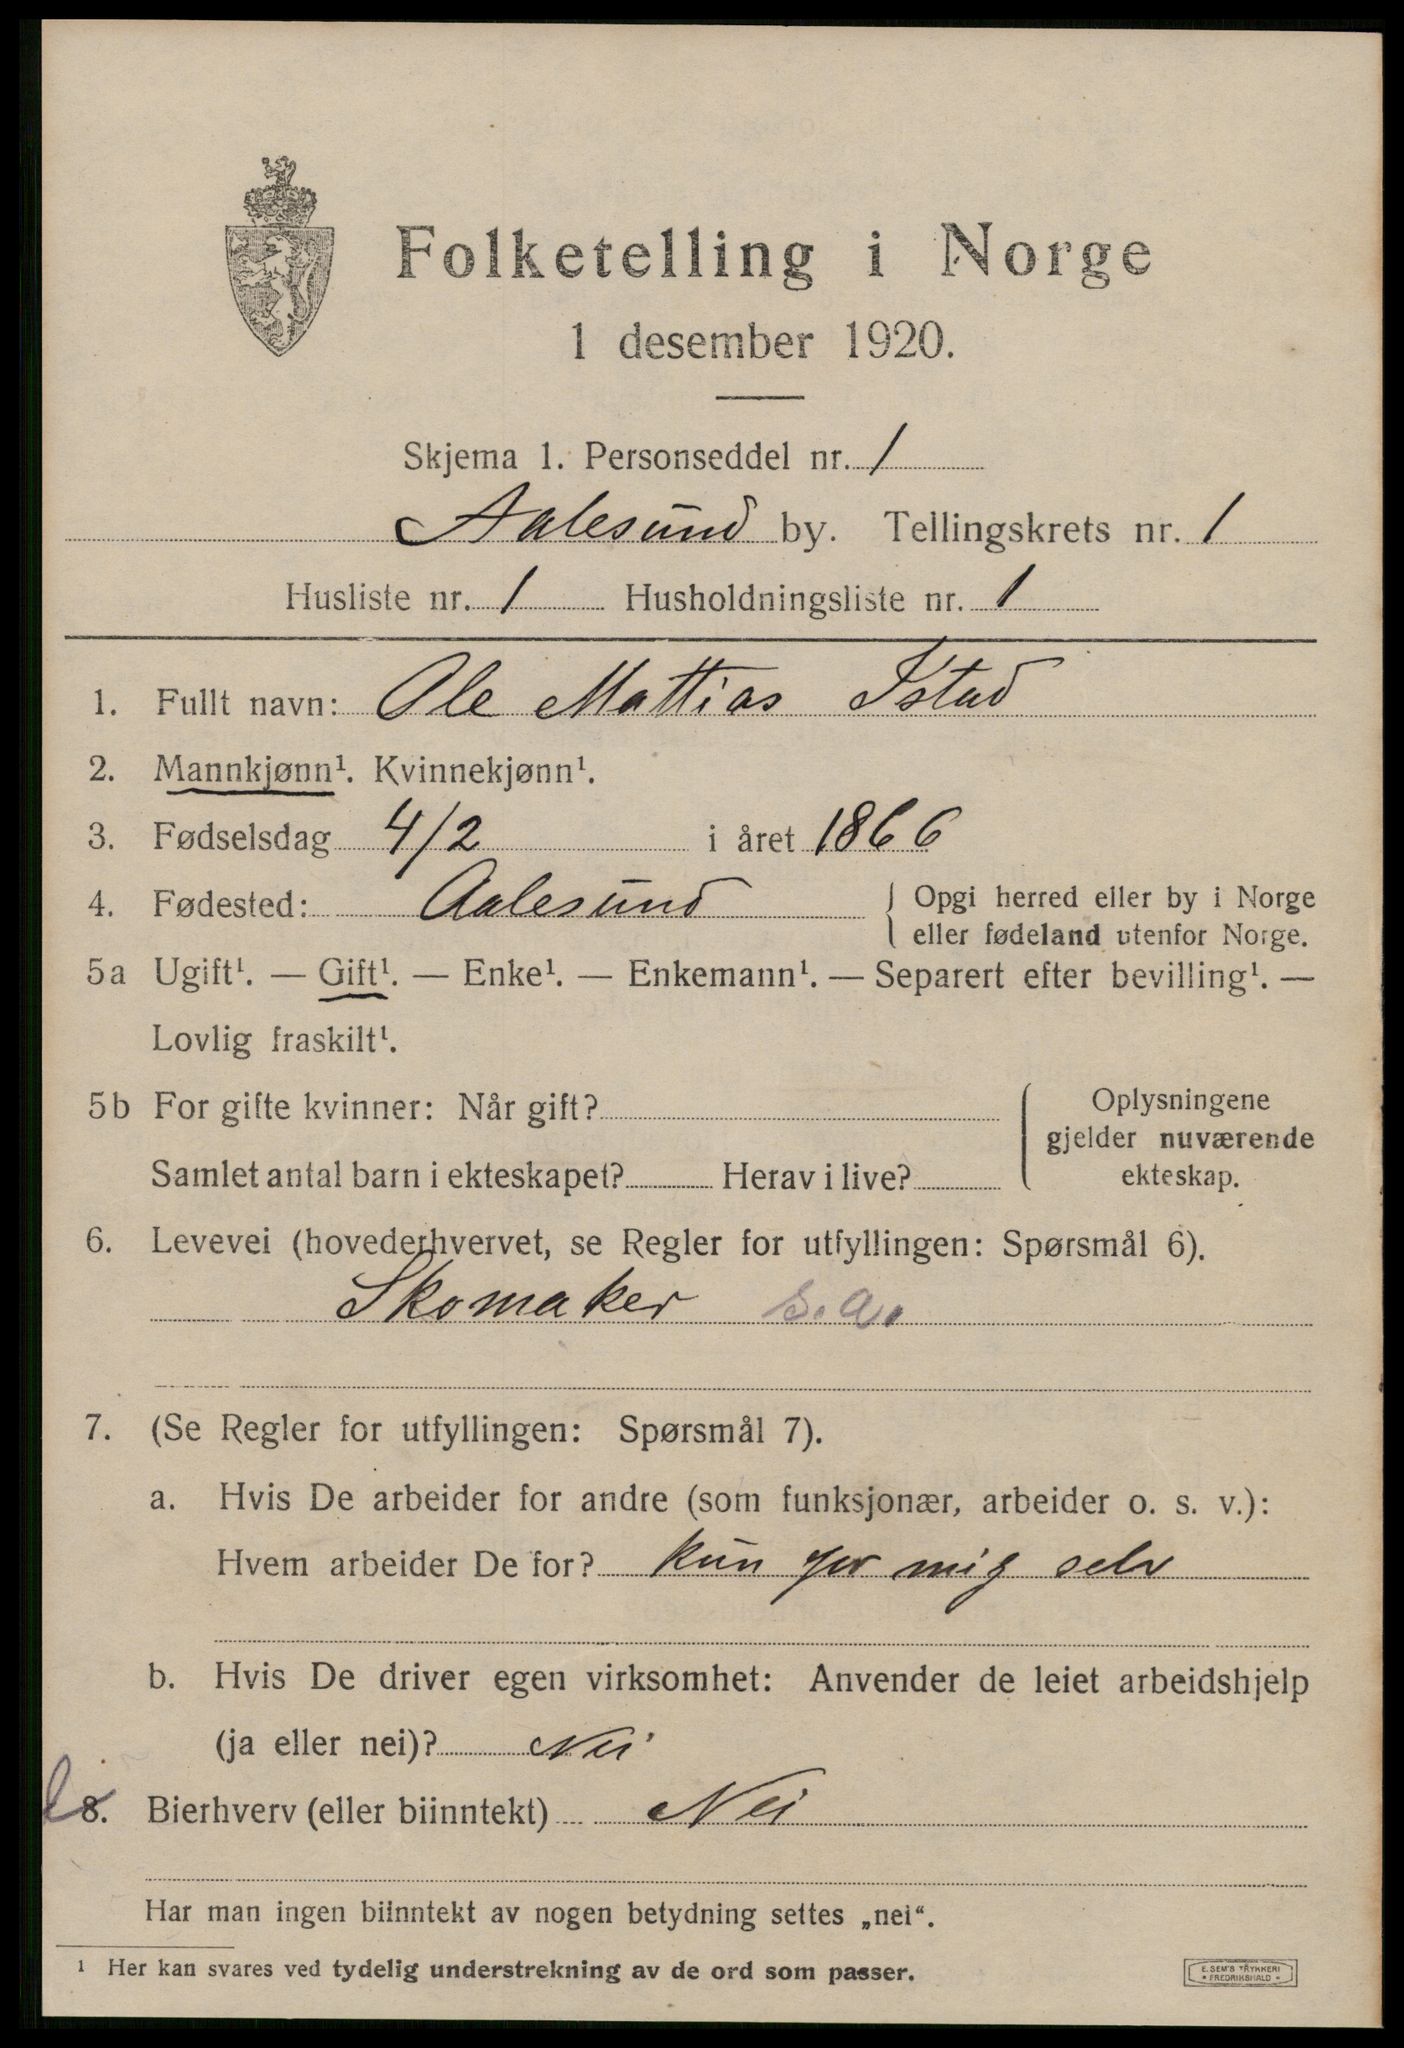 Folketelling i Norge
1 desember 1920.
Skjema 1. Personseddel nr. 1
Aalesund by. Tellingskrets nr. 1
Husliste nr. 1 Husholdningsliste nr. 1
1. Fullt navn: Ole Mattias Istad
2. Mannkjønn¹. Kvinnekjønn¹.
3. Fødselsdag 4/2 i året 1866
4. Fødested: Aalesund { Opgi herred eller by i Norge
eller fødeland utenfor Norge.
5a Ugift¹. — Gift¹. — Enke¹. — Enkemann¹. — Separert efter bevilling¹. —
Lovlig fraskilt¹.
5b For gifte kvinner: Når gift? { Oplysningene
gjelder nuværende
Samlet antal barn i ekteskapet? Herav i live? ekteskap.
6. Levevei (hovederhvervet, se Regler for utfyllingen: Spørsmål 6).
Skomaker s.a.
7. (Se Regler for utfyllingen: Spørsmål 7).
a. Hvis De arbeider for andre (som funksjonær, arbeider o. s. v.):
Hvem arbeider De for? kun for mig selv
b. Hvis De driver egen virksomhet: Anvender de leiet arbeidshjelp
(ja eller nei)? Nei
8. Bierhverv (eller biinntekt) Nei
Har man ingen biinntekt av nogen betydning settes „nei“.
¹ Her kan svares ved tydelig understrekning av de ord som passer.
E. SEM'S TRYKKERI
* FREDRIKSHALD *